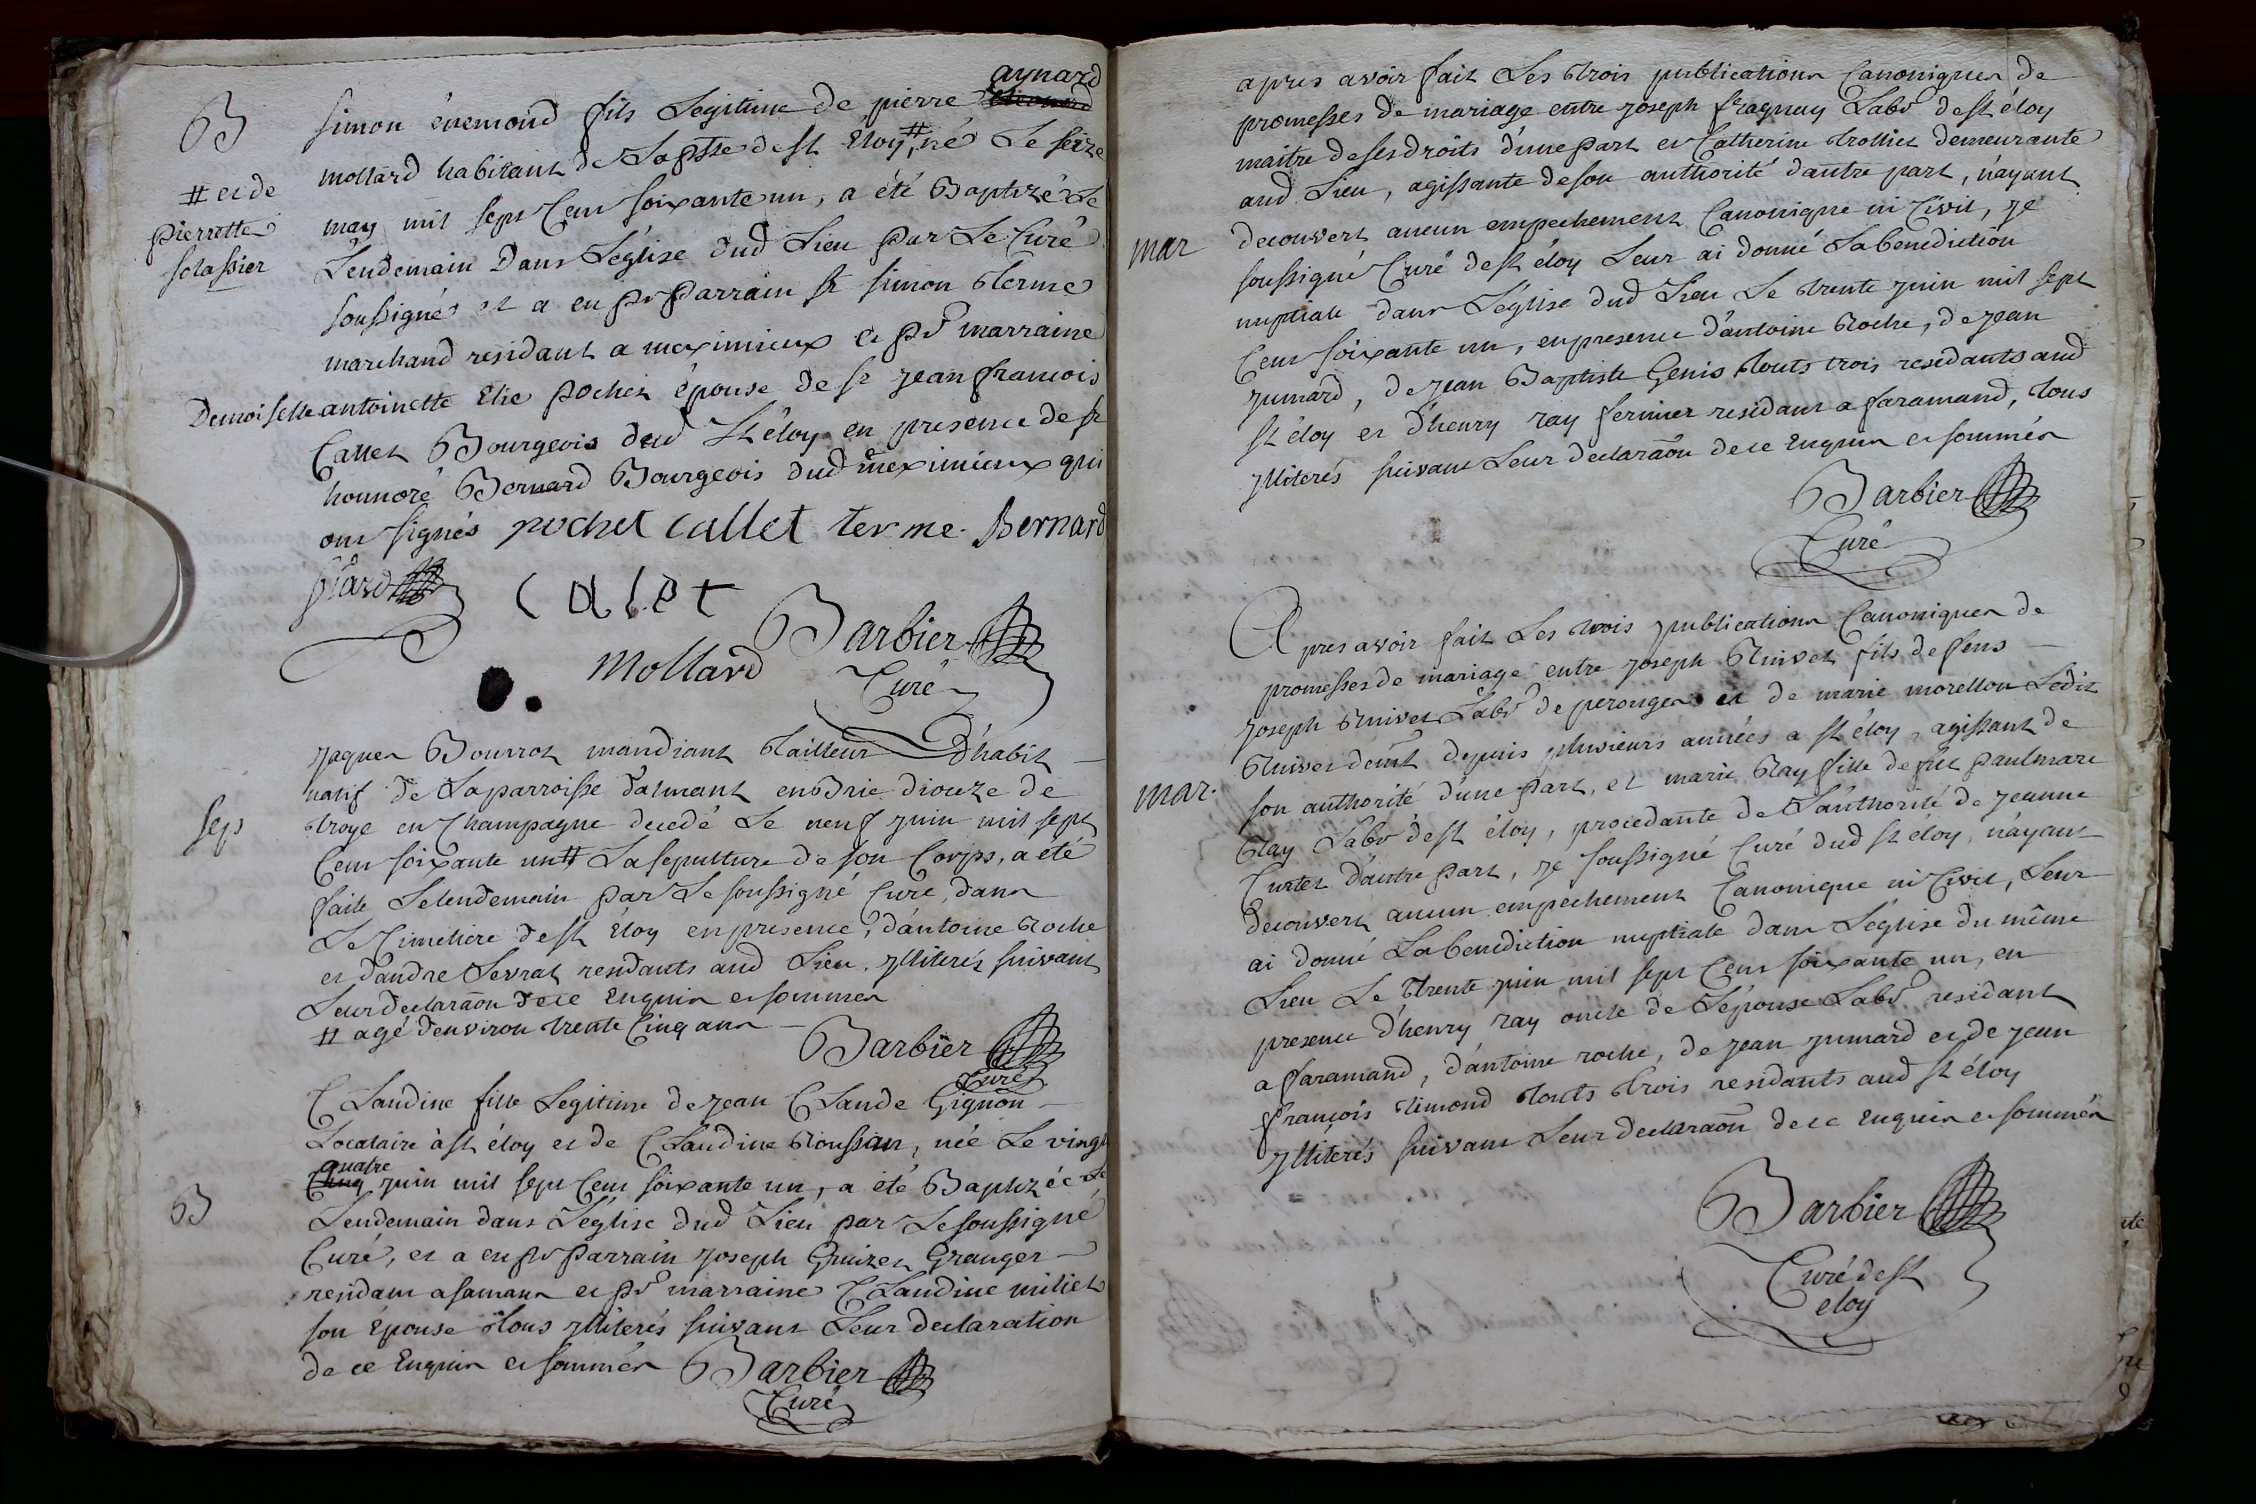 aynard
B
simon énemond fils Legitime de pierre
mollard habitant de La psse de st Eloy #, né Le seize
# et de
pierrette
sclassier
may mil sept Cent soixante un, a été Baptizé Le
Lendemain Dans L'église dud Lieu par Le Curé
soussigné et a eu pr parrain sr simon Terme
marchand residant a meximieux et pr marraine
Demoiselle antoinette Elie pochet épouse de sr jean francois
Callet Bourgeois dud St éloy en presence de sr
honnoré Bernard Bourgeois dud meximieux qui
ont signés pochet callet terme. Bernard
calet
Mollard Barbier
Curé
jaques Bourrot mandiant Tailleur d'habit
natif de La parroisse d'almant en Brie dioceze de
sep
troye en Champagne decedé Le neuf juin mil sept
Cent soixante un # La sepulture de son Corps, a été
faite Le lendemain par Le soussigné Curé, dans
Le Cimetiere de st Eloy en presence, d'antoine Roche
et d'andre Sevrat residants aud Lieu. jlliterés suivant
Leur declaraõn de ce Enquis et sommés
# agé d'environ trente Cinq ans
Barbier
Curé
Claudine fille Legitime de jean Claude Gignon
Locataire à st éloy et de Claudine Roussian, née Le vingt
quatre
Cinq juin mil sept Cent soixante un, a été Baptizée Le
B
Lendemain dans L'église dud Lieu par Le soussigné
Curé, et a eu pr parrain joseph Guizet Granger
residant a samans et pr marraine Claudine miliet
son Epouse Tous jlliterés suivant Leur declaration
de ce Enquis et sommés Barbier
Curé
apres avoir fait Les trois publications Canoniques de
promesses de mariage entre joseph fragnay Labr de st éloy
maitre de ses droits d'une part et Catherine Trolliet demeurante
aud Lieu, agissante de son authorité d'autre part, n'ayant
mar
decouvert aucun empechement Canonique ni Civil, je
soussigné Curé de st éloy Leur ai donné La benediction
nuptiale dans L'église dud Lieu Le trente juin mil sept
Cent soixante un, en presence d'antoine Roche, de jean
jumard, de jean Baptiste Genis touts trois residants aud
st éloy et d'henry ray fermier residant a faramand, tous
jlliterés suivant Leur declaraõn de ce Enquis et sommés
Barbier
Curé
Apres avoir fait Les trois publications Canoniques de
promesses de mariage entre joseph Ruivet fils de feus
joseph Ruivet Labr de perouges et de marie morellon Ledit
Ruivet demt depuis plusieurs années a st éloy, agissant de
mar.
son authorité d'une part, et marie Ray fille de fut paulmare
Ray Labr de st éloy, procedante de L'authorité de jeanne
Curtet d'autre part, je soussigné Curé dud st éloy, n'ayant
decouvert aucun empechement Canonique ni Civil, Leur
ai donné La benediction nuptiale dans L'église du même
Lieu Le trente juin mil sept Cent soixante un, en
presence d'henry ray oncle de L'épouse Labr residant
a faramand, d'antoine roche, de jean jumard et de jean
françois Rimond touts trois residants aud st éloy
jlliterés suivant Leur declaraõn de ce Enquis et sommés
Barbier
Curé de st
eloy